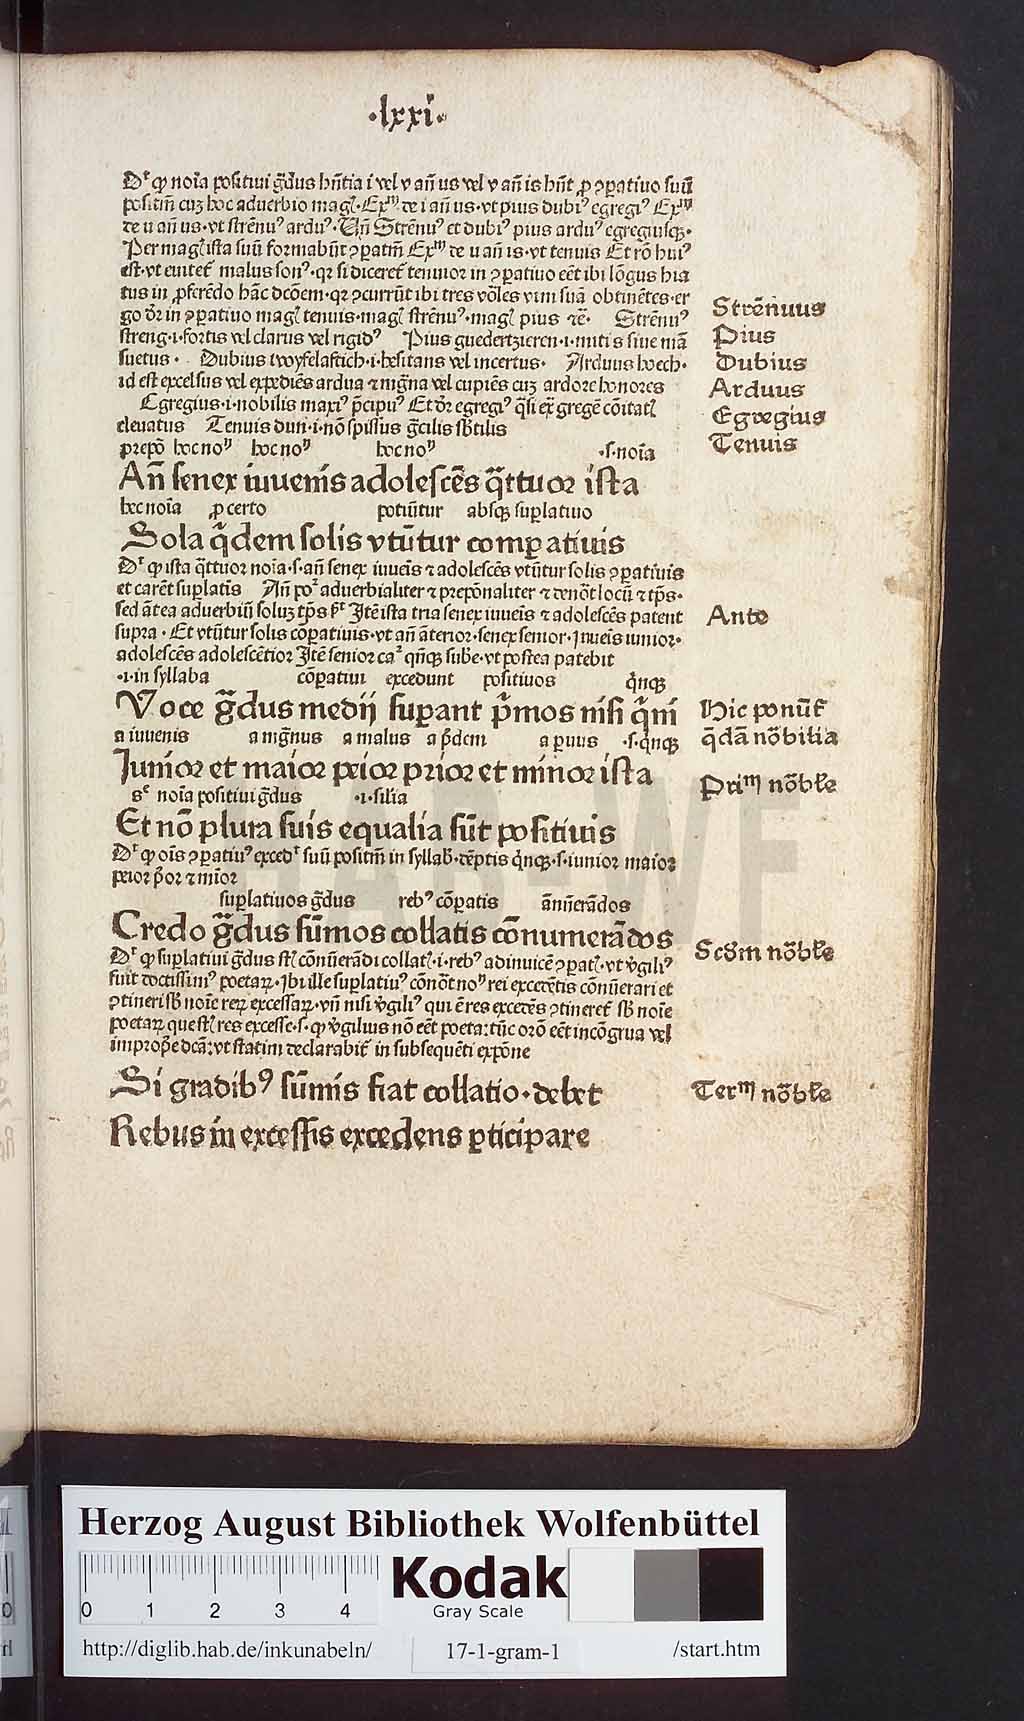 ·lxxi·
Dr̄ ꝙ noīa positiui gͣdus hn̄tia i vel v an̄ us vel v an̄ is hn̄t ꝓ ꝯꝑatiuo suū
positm̄ cuȝ hoc aduerbio magꝭ· Exᵐ de i an̄ us· vt pius dubiꝰ egregiꝰ Exᵐ
de u an̄ us· vt strēnuꝰ arduꝰ· Vn̄ Strēnuꝰ et dubiꝰ pius arduꝰ egregiusqꝫ·
Per magꝭ ista suū formabūt ꝯꝑatm̄ Exᵐ de u an̄ is· vt tenuis Et rō huiꝰ
est· vt euitet̄ malus sonꝰ· qꝛ si diceret̄ tenuior in ꝯꝑatiuo eēt ibi lōgus hia
tus in ꝓferēdo hāc dcōem· qꝛ ꝯcurrūt ibi tres vōles vim suā obtinētes· er
go dꝛ in ꝯꝑatiuo magꝭ tenuis· magꝭ strēnuꝰ· magꝭ pius ⁊ē· Strēnuꝰ
streng·i·fortis vel clarus vel rigidꝰ Pius guedertzieren·i·mitis siue mā
suetus· Dubius twyfelaftich·i·hesitans vel incertus· Arduus hoech·
id est excelsus vel expediēs ardua ⁊ mḡna vel cupiēs cuȝ ardore honores
Egregius·i·nobilis maxiꝰ p̄cipuꝰ Et dꝛ egregiꝰ q̄si ex̄ gregē cōitatꝭ
eleuatus Tenuis dun·i·nō spissus gͣcilis sb̄tilis
prepō hoc noᵐ hoc noᵐ hoc noᵐ ·s·noīa
An̄ senex iuuenis adolescēs qͣttuor ista
hec noīa ꝓ certo potiūtur absqꝫ suꝑlatiuo
Sola qͥdem solis vtūtur comꝑatiuis
Dr̄ ꝙ ista qͣttuor noīa·s·an̄ senex iuueīs ⁊ adolescēs vtūtur solis ꝯꝑatiuis
et carēt suꝑlatīs An̄ poꝰ aduerbialiter ⁊ preponaliter ⁊ denōt locū ⁊ tp̄s·
sed ātea aduerbiū soluȝ tp̄s pᵗ Itē ista tria senex iuueīs ⁊ adolescēs patent
supra· Et vtūtur solis cōꝑatiuis· vt an̄ āterior· senex senior· Iuueīs iunior·
adolescēs adolescētior Itē senior caꝰ qn̄qꝫ subē· vt postea patebit
·i·in syllaba cōꝑatiui excedunt positiuos qͥnqꝫ
Voce gͣdus medij suꝑant pͥmos nisi qͥni
a iuuenis a mḡnus a malus a p̄dem a ꝑuus ·s·qͥnqꝫ
Iunior et maior peior prior et minor ista
sᵉ noīa positiui gͣdus ·i·silia
Et nō plura suis equalia sūt positiuis
Dr̄ ꝙ oīs ꝯꝑatiuꝰ excedᵗ suū positm̄ in syllab̄· dēptis qͥnqꝫ·s·iunior maior
peior pͥor ⁊ mīor
suꝑlatiuos gͣdus rebꝰ cōꝑatis ānūerādos
Credo gͣdus sūmos collatis cōnumerādos
Dr̄ ꝙ suꝑlatiui gͣdus sꝭ cōnūerādi collatꝭ·i·rebꝰ adinuicē ꝯꝑatꝭ· vt v̓giliꝰ
fuit doctissimꝰ poetaꝝ· Ibi ille suꝑlatiuꝰ cōnōt noᵐ rei excedētis cōnūerari et
ꝯtineri sb̄ noīe reꝝ excessaꝝ· vn̄ nisi v̓giliꝰ qui ē res excedēs ꝯtineret̄ sb̄ noīe
poetaꝝ que sꝭ res excesse·s·ꝙ v̓gilius nō eēt poeta: tūc orō eēt incōgrua vel
improp̄e dc̄a: vt statim declarabit̄ in subsequēti expōne
Si gradibꝰ sūmis fiat collatio· debet
Rebus in excessis excedens ꝑticipare
Strēnuus
Pius
Dubius
Arduus
Egregius
Tenuis
Ante
Hic ponūt̄
qͥdā nōbilia
Priᵐ nōbīle
Scd̄m nōbīle
Terᵐ nōbīle
HAB-WF
Herzog August Bibliothek Wolfenbüttel
0 1 2 3 4
Kodak
Gray Scale
http://diglib.hab.de/inkunabeln/
17-1-gram-1
/start.htm